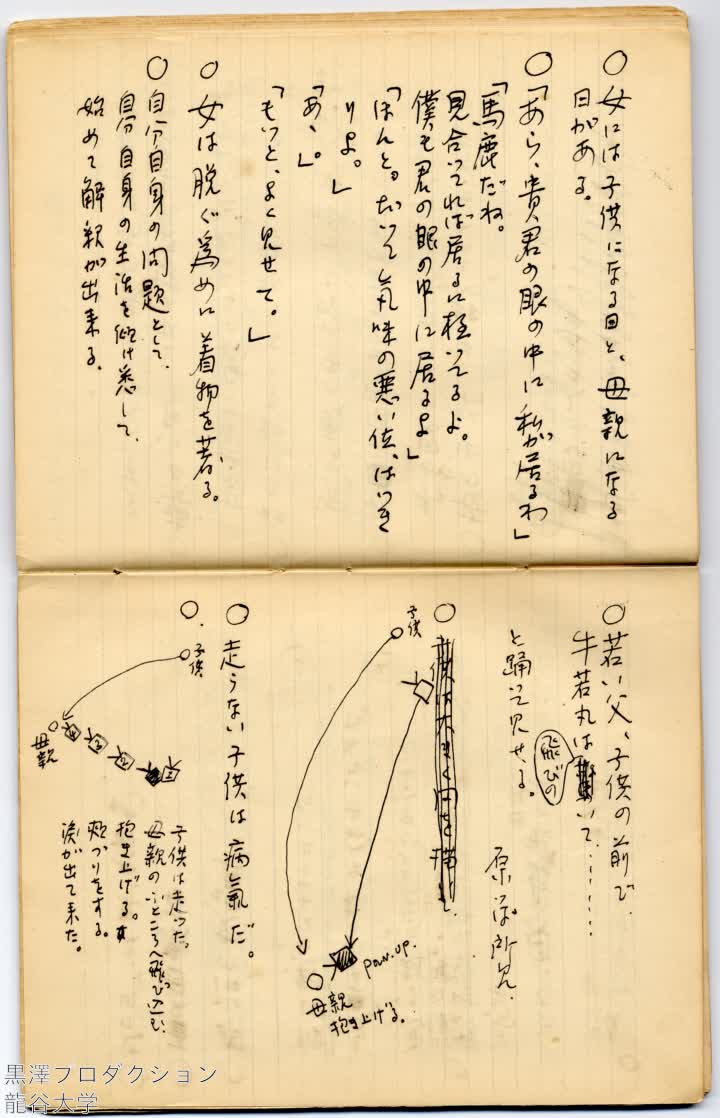 ○女には子供になる日と、母親になる
日がある。
○「あら、貴君の眼の中に私が居るわ」
「馬鹿だね。
見合つてれば居るに極つてるよ。
僕も君の眼の中に居るよ」
「ほんと。だつて気味の悪い位、はつき
りよ。」
「あゝ」。
「もつと、よく見せて。」
○女は脱ぐ為めに着物を着る。
○自分自身の問題として、
自分自身の生活を
始めて解釈が出来る。
○若い父、子供の前で
牛若丸は飛びのいて、………
と踊つて見せる。
○
子供
pan.up.
母親
抱き上げる。
○走らない子供は病気だ。
○.
子供
母親
子供は走つた。
母親のふところへ飛び込む。
抱き上げる。
頬づりをする。
涙が出て来た。
黒澤プロダクション
龍谷大学